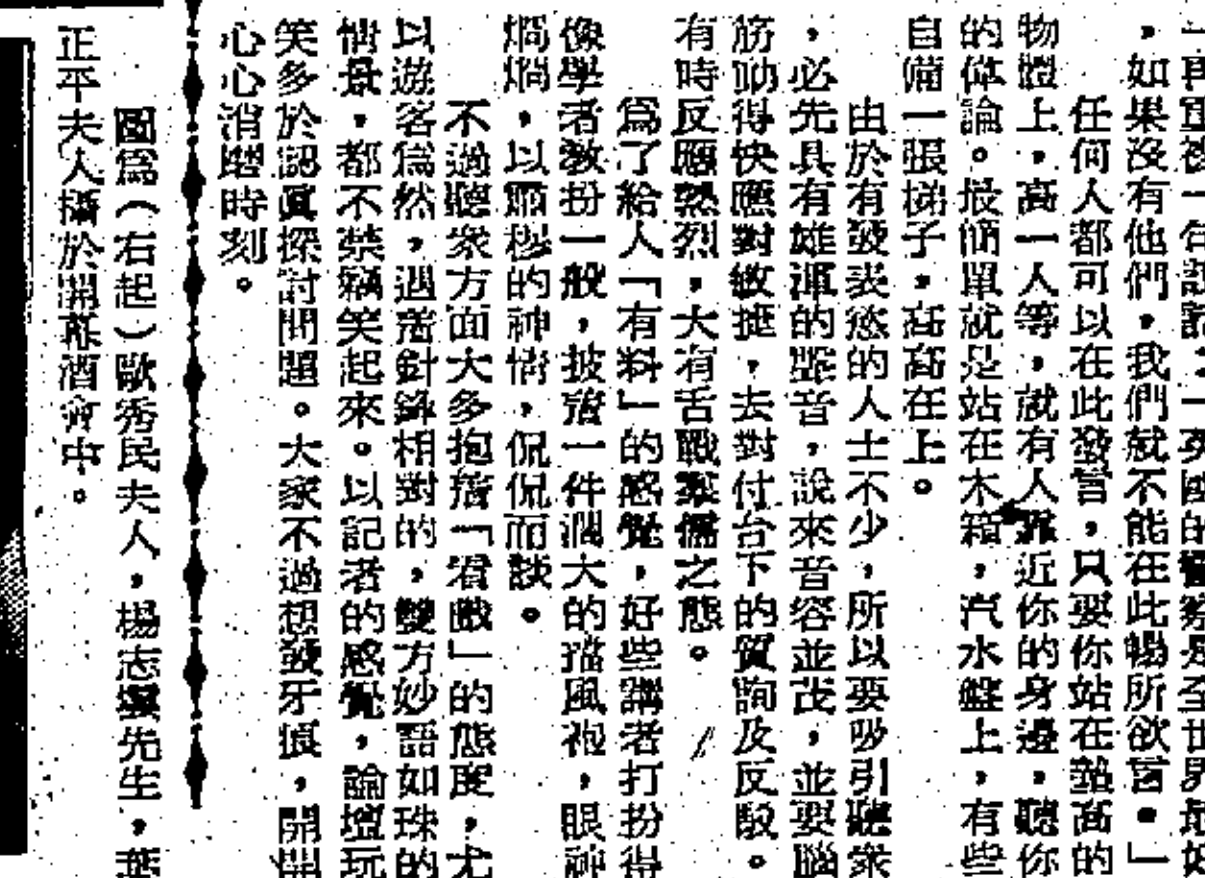 一再重複一句的警察是全世界最好
,如果沒有他們,我們就不能在此暢所欲言。」
任何人都可以在此發言,只要你站在墊高的
物體上,高一人等,就有人靠近你的身邊,聽你
的偉論。最簡單就是站在木箱,汽水盤上,有些
自備一張梯子,高高在上。
由於有發表慾的人士不少,所以要吸引聽衆
,必先具有雄渾的聲音,說來音容並茂,並要腦
筋動得快應對敏捷,去對付台下的質詢及反駁。
有時反應熱烈,大有舌戰羣儒之態。
爲了給人「有料」的感覺,好些講者打扮得
像學者敎扮一般,披着一件濶大的擋風袍,眼神
烱烱,以肅穆的神情,侃侃而談。
不過聽衆方面大多抱着「看戲」的態度,尤
以遊客爲然,遇着針鋒相對的,雙方妙語如珠的
情景,都不禁竊笑起來。以記者的感覺,論壇玩
笑多於認眞探討問題。大家不過想發牙痕,開開
心心消磨時刻。
圖爲(右起)歐秀民夫人,楊志先生,葉
正平夫人攝於開幕酒會中。